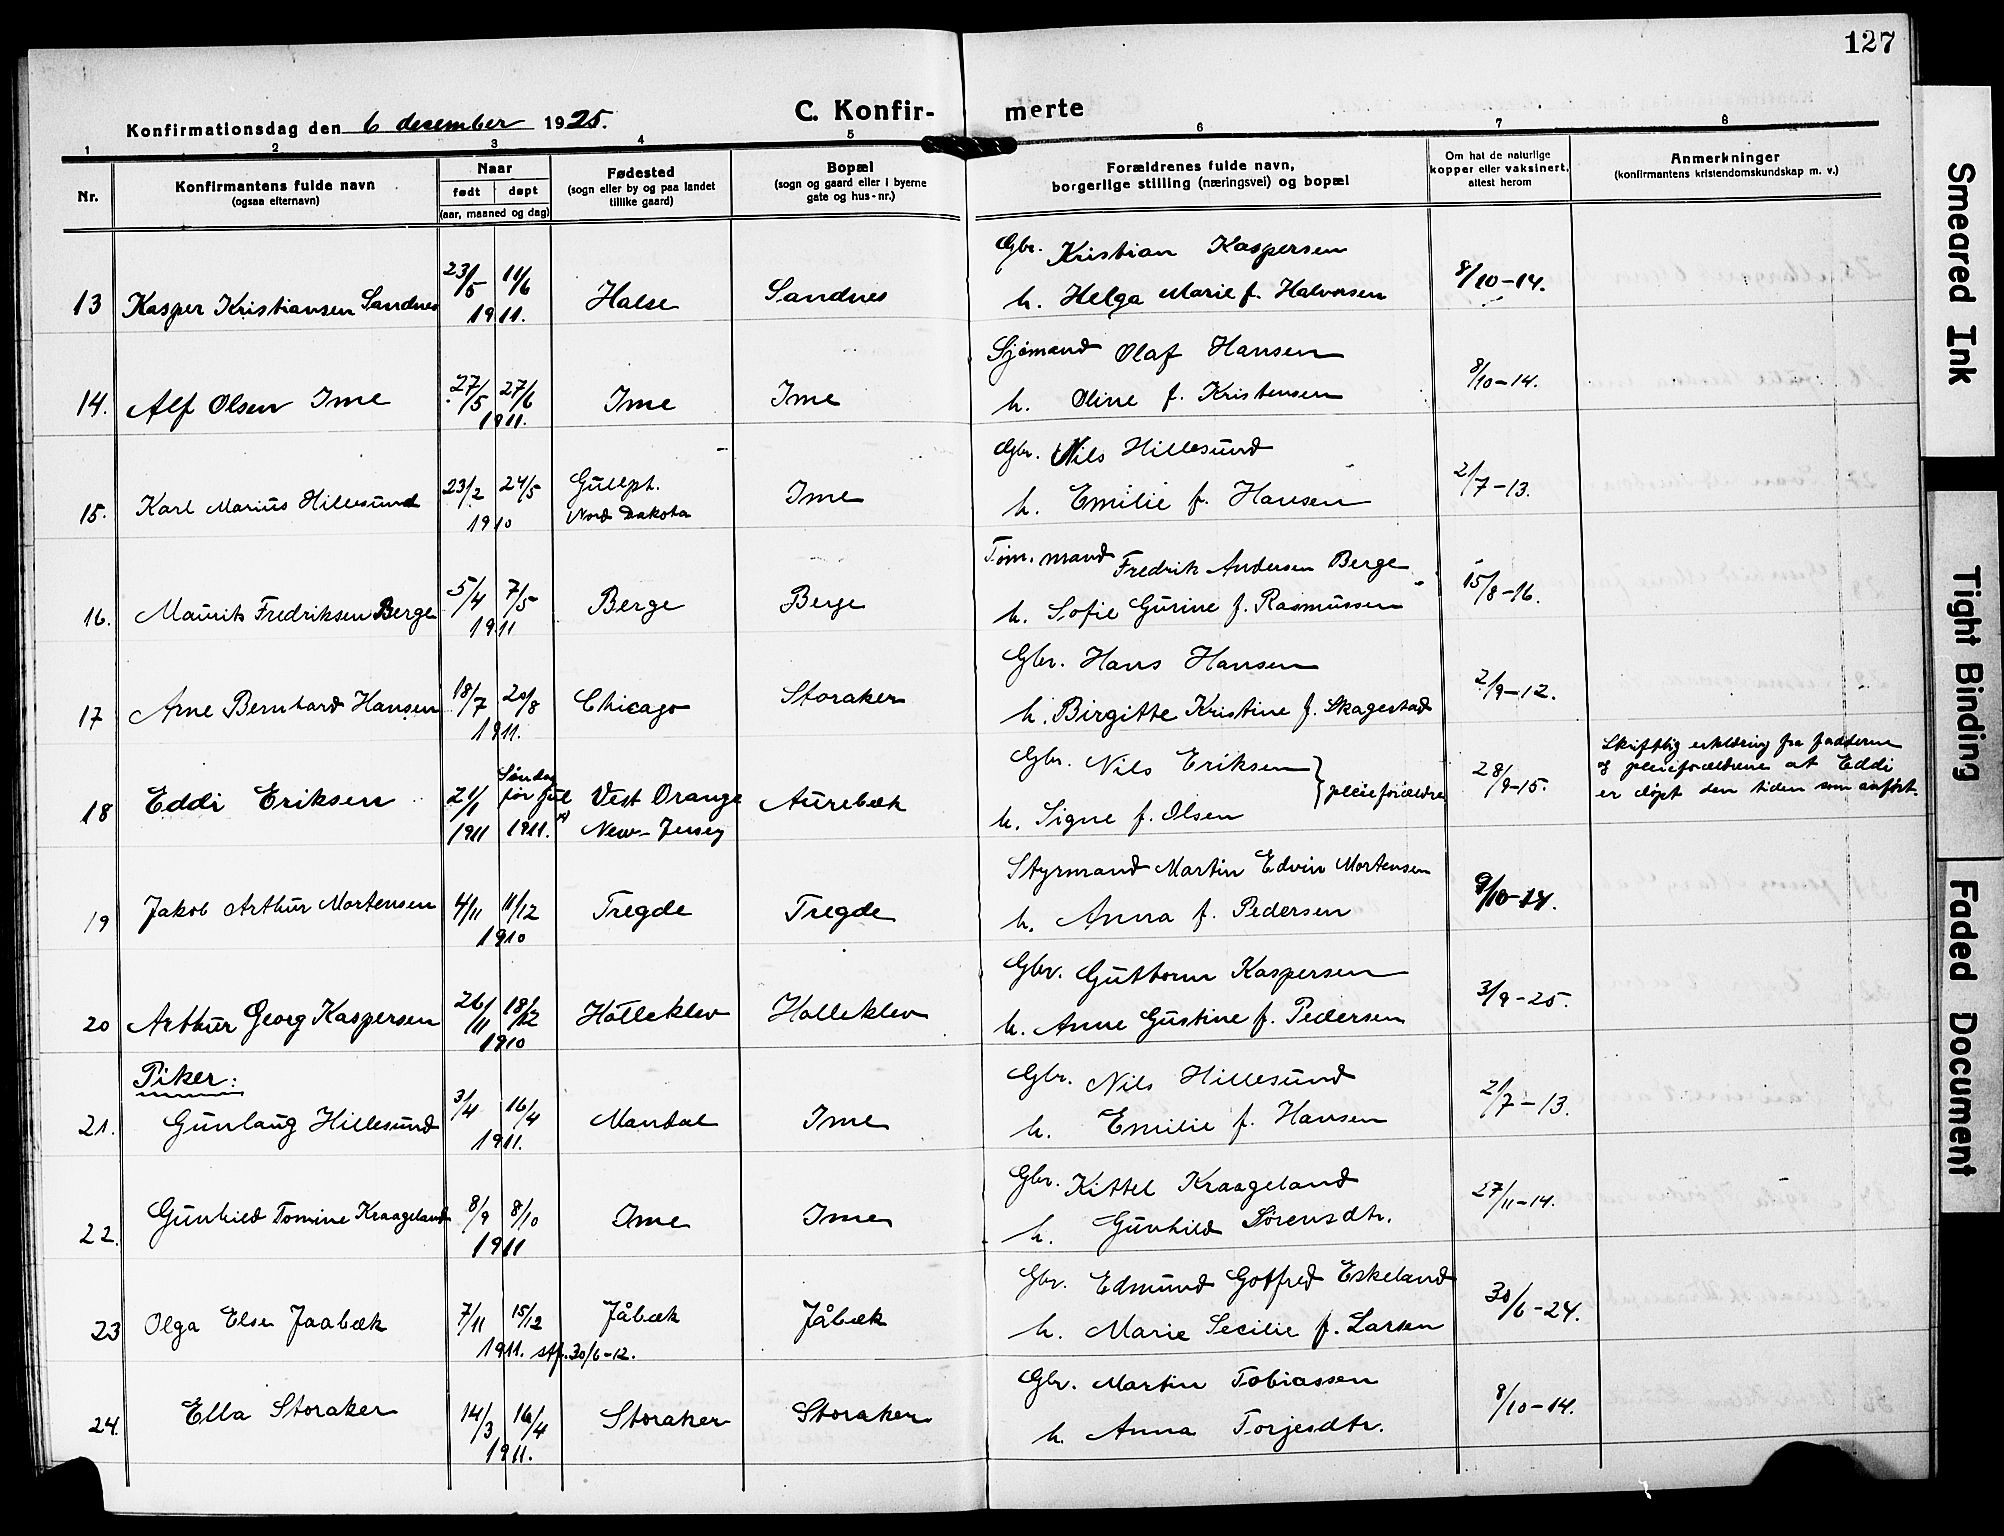 127
Konfirmationsdag den 6 desember 1925.
C. Konfir- merte
1 2 3 4 5 6 7 8
Nr.
Konfirmantens fulde navn
(ogsaa efternavn)
Naar
født døpt
(aar, maaned og dag)
Fødested
(sogn eller by og paa landet
tillike gaard)
Bopæl
(sogn og gaard eller i byerne
gate og hus-nr.)
Forældrenes fulde navn,
borgerlige stilling (næringsvei) og bopæl
Om hat de naturlige
kopper eller vaksinert,
attest herom
Anmerkninger
(konfirmantens kristendomskundskap m. v.)
Gbr. Kristian Kaspersen
13 Kasper Kristiansen Sandnes 23/5 11/6 1911. Halse Sandnes h. Helga Marie f. Halvorsen 8/10-14.
Sjømand Olaf Hansen
14. Alf Olsen Ime 27/5 27/6 1911. Ime Ime h. Oline f. Kristensen 8/10-14.
Gbr. Nils Hillesund
15. Karl Marius Hillesund 23/2 24/5 1910 Guelph. Nord Dakota Ime h. Emilie f. Hansen 2/7-13.
Tøm.mand Fredrik Andersen Berge
16. Maurits Fredriksen Berge 5/4 7/5 1911 Berge Berge h. Sofie Gurine f. Rasmussen 15/8-16.
Gbr. Hans Hansen
17 Arne Bernhard Hansen 18/7 20/8 1911. Chicago Storaker h. Birgitte Kristine f. Skagestad 2/9-12.
Gbr. Nils Eriksen } pleieforældre
18 Eddi Eriksen 21/1 1911 Søndag før jul 1911. Vest Orange New-Jersey Aurebæk h. Signe f. Olsen 28/9-15.
Skriftlig erklæring fra fadderne
og pleieforældrene at Eddi
er døpt den tiden som anført.
Styrmand Martin Edvin Mortensen
19 Jakob Arthur Mortensen 4/11 11/12 1910 Tregde Tregde h. Anna f. Pedersen 9/10-14.
Gbr. Guttorm Kaspersen
20 Arthur Georg Kaspersen 26/11 18/12 1910 Hålleklev Holleklev h. Anne Gustine f. Pedersen 3/9-25.
Piker:
Gbr. Nils Hillesund
21. Gunlaug Hillesund 3/4 16/4 1911. Mandal Ime h. Emilie f. Hansen 2/7-13.
Gbr. Kittel Kraageland
22. Gunhild Tomine Kraageland 8/9 8/10 1911 Ime Ime h. Gunhild Sørensdtr. 27/11-14.
Gbr. Edmund Gotfred Eskeland
23 Olga Else Jaabæk 7/11 15/12 1911. stf. 30/6-12. Jåbæk Jåbæk h. Marie Secilie f. Larsen 30/6-24.
Gbr. Martin Tobiassen
24. Ella Storaker 14/3 16/4 1911. Storaker Storaker h. Anna Torjesdtr. 8/10-14.
Smeared Ink
Tight Binding
Faded Document